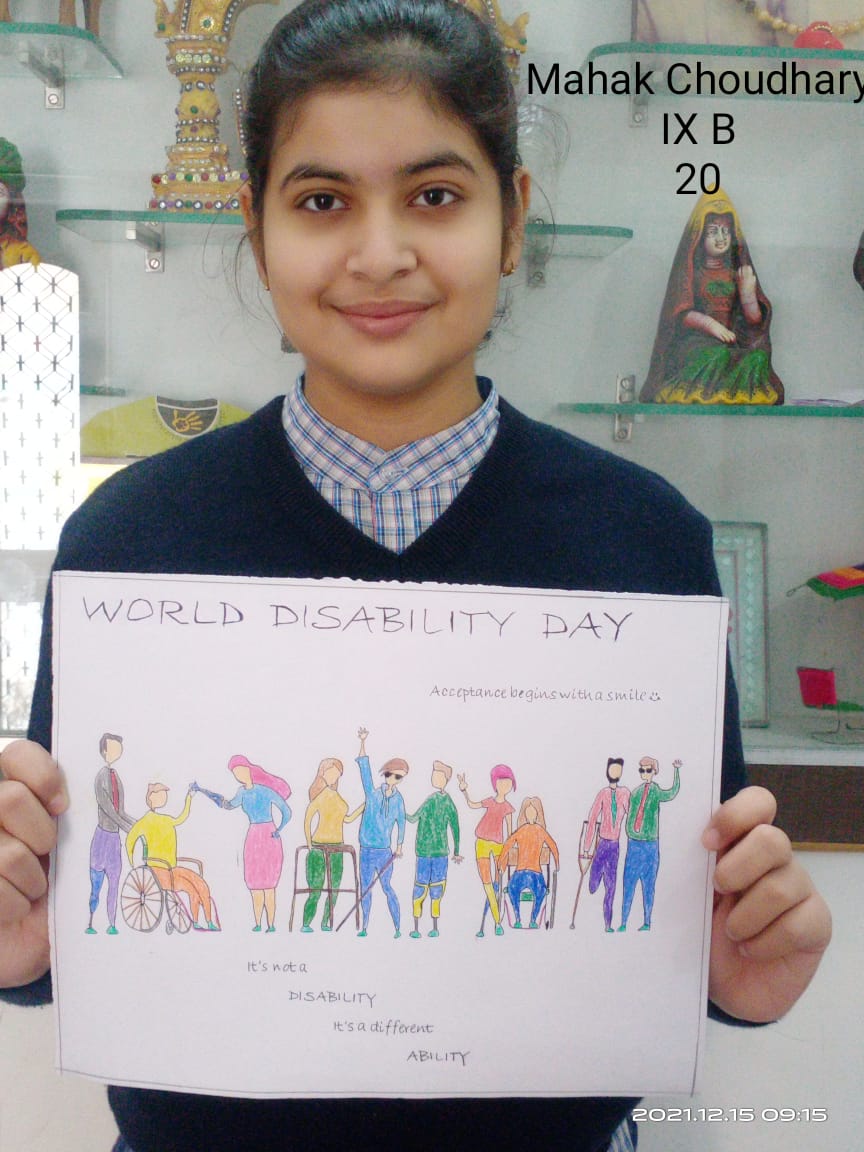 Mahak Choudhary
IX B
20
WORLD DISABILITY DAY
Acceptance begins with a smile
It's not a
DISABILITY
It's a different
ABILITY
2021.12.15 09:15